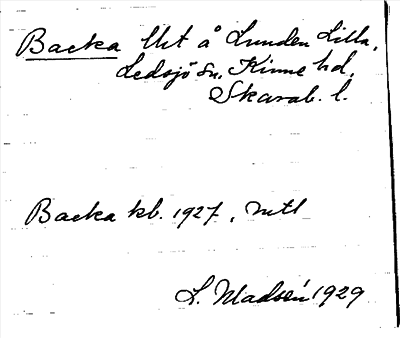 Backa lht å Lunden Lilla,
Ledsjö sn. Kinne hd.
Skarab. l.
Backa kb. 1927, mtl
L. Madsén 1929